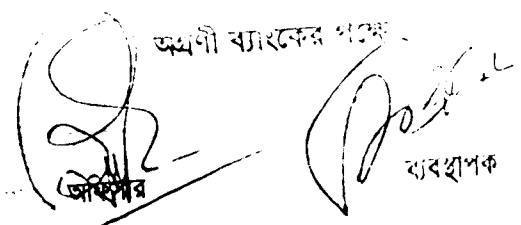 অগ্রণী ব্যাংকের পক্ষে
অফিসার
ব্যবস্থাপক